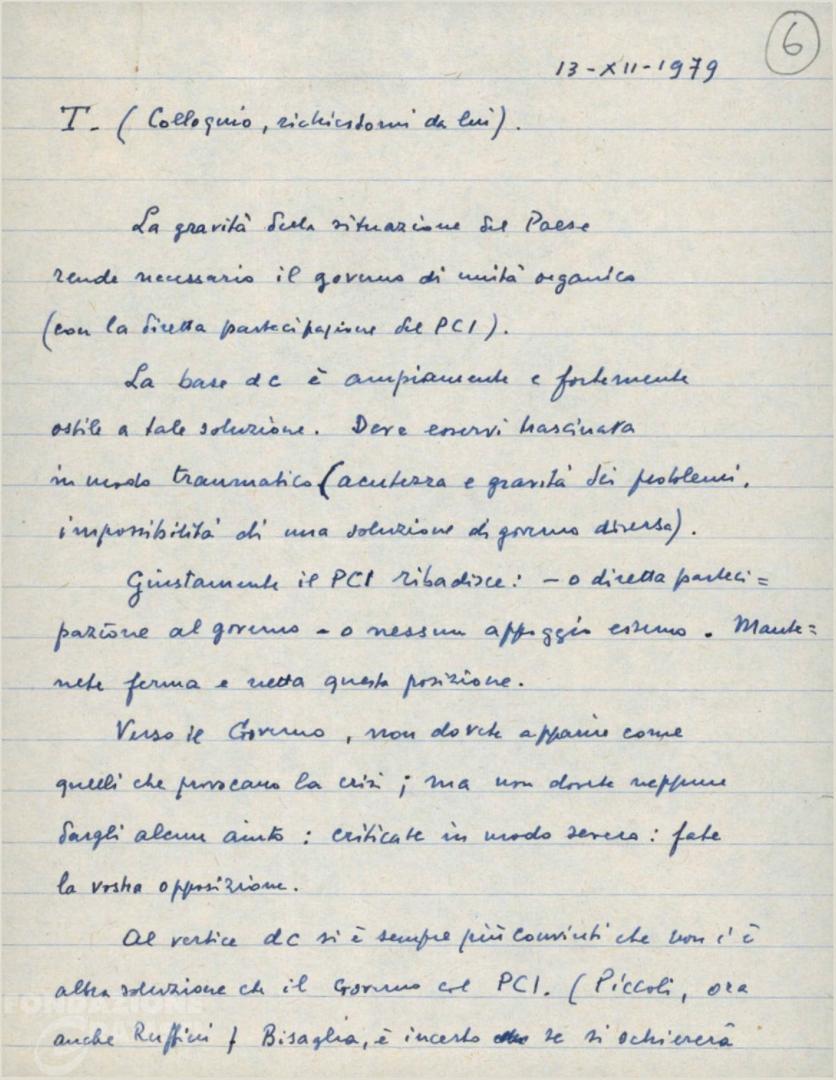 6
13-XII-1979
T. (Colloquio, richiestomi da lui).
La gravità della situazione del Paese
rende necessario il governo di unità organica
(con la diretta partecipazione del PCI).
La base dc è ampiamente e fortemente
ostile a tale soluzione. Deve esservi trascinata
in modo traumatico (acutezza e gravità dei problemi,
impossibilità di una soluzione di governo diversa).
Giustamente il PCI ribadisce: - o diretta parteci=
pazione al governo - o nessun appoggio esterno. Mante=
nete ferma e netta questa posizione.
Verso il Governo, non dovete apparire come
quelli che provocano la crisi; ma non dovete neppure
dargli alcun aiuto: criticate in modo severo: fate
la vostra opposizione.
Al vertice dc si è sempre più convinti che non c'è
altra soluzione che il Governo col PCI. (Piccoli, ora
anche Ruffini; Bisaglia, è incerto se si schiererà
FONDAZIONE